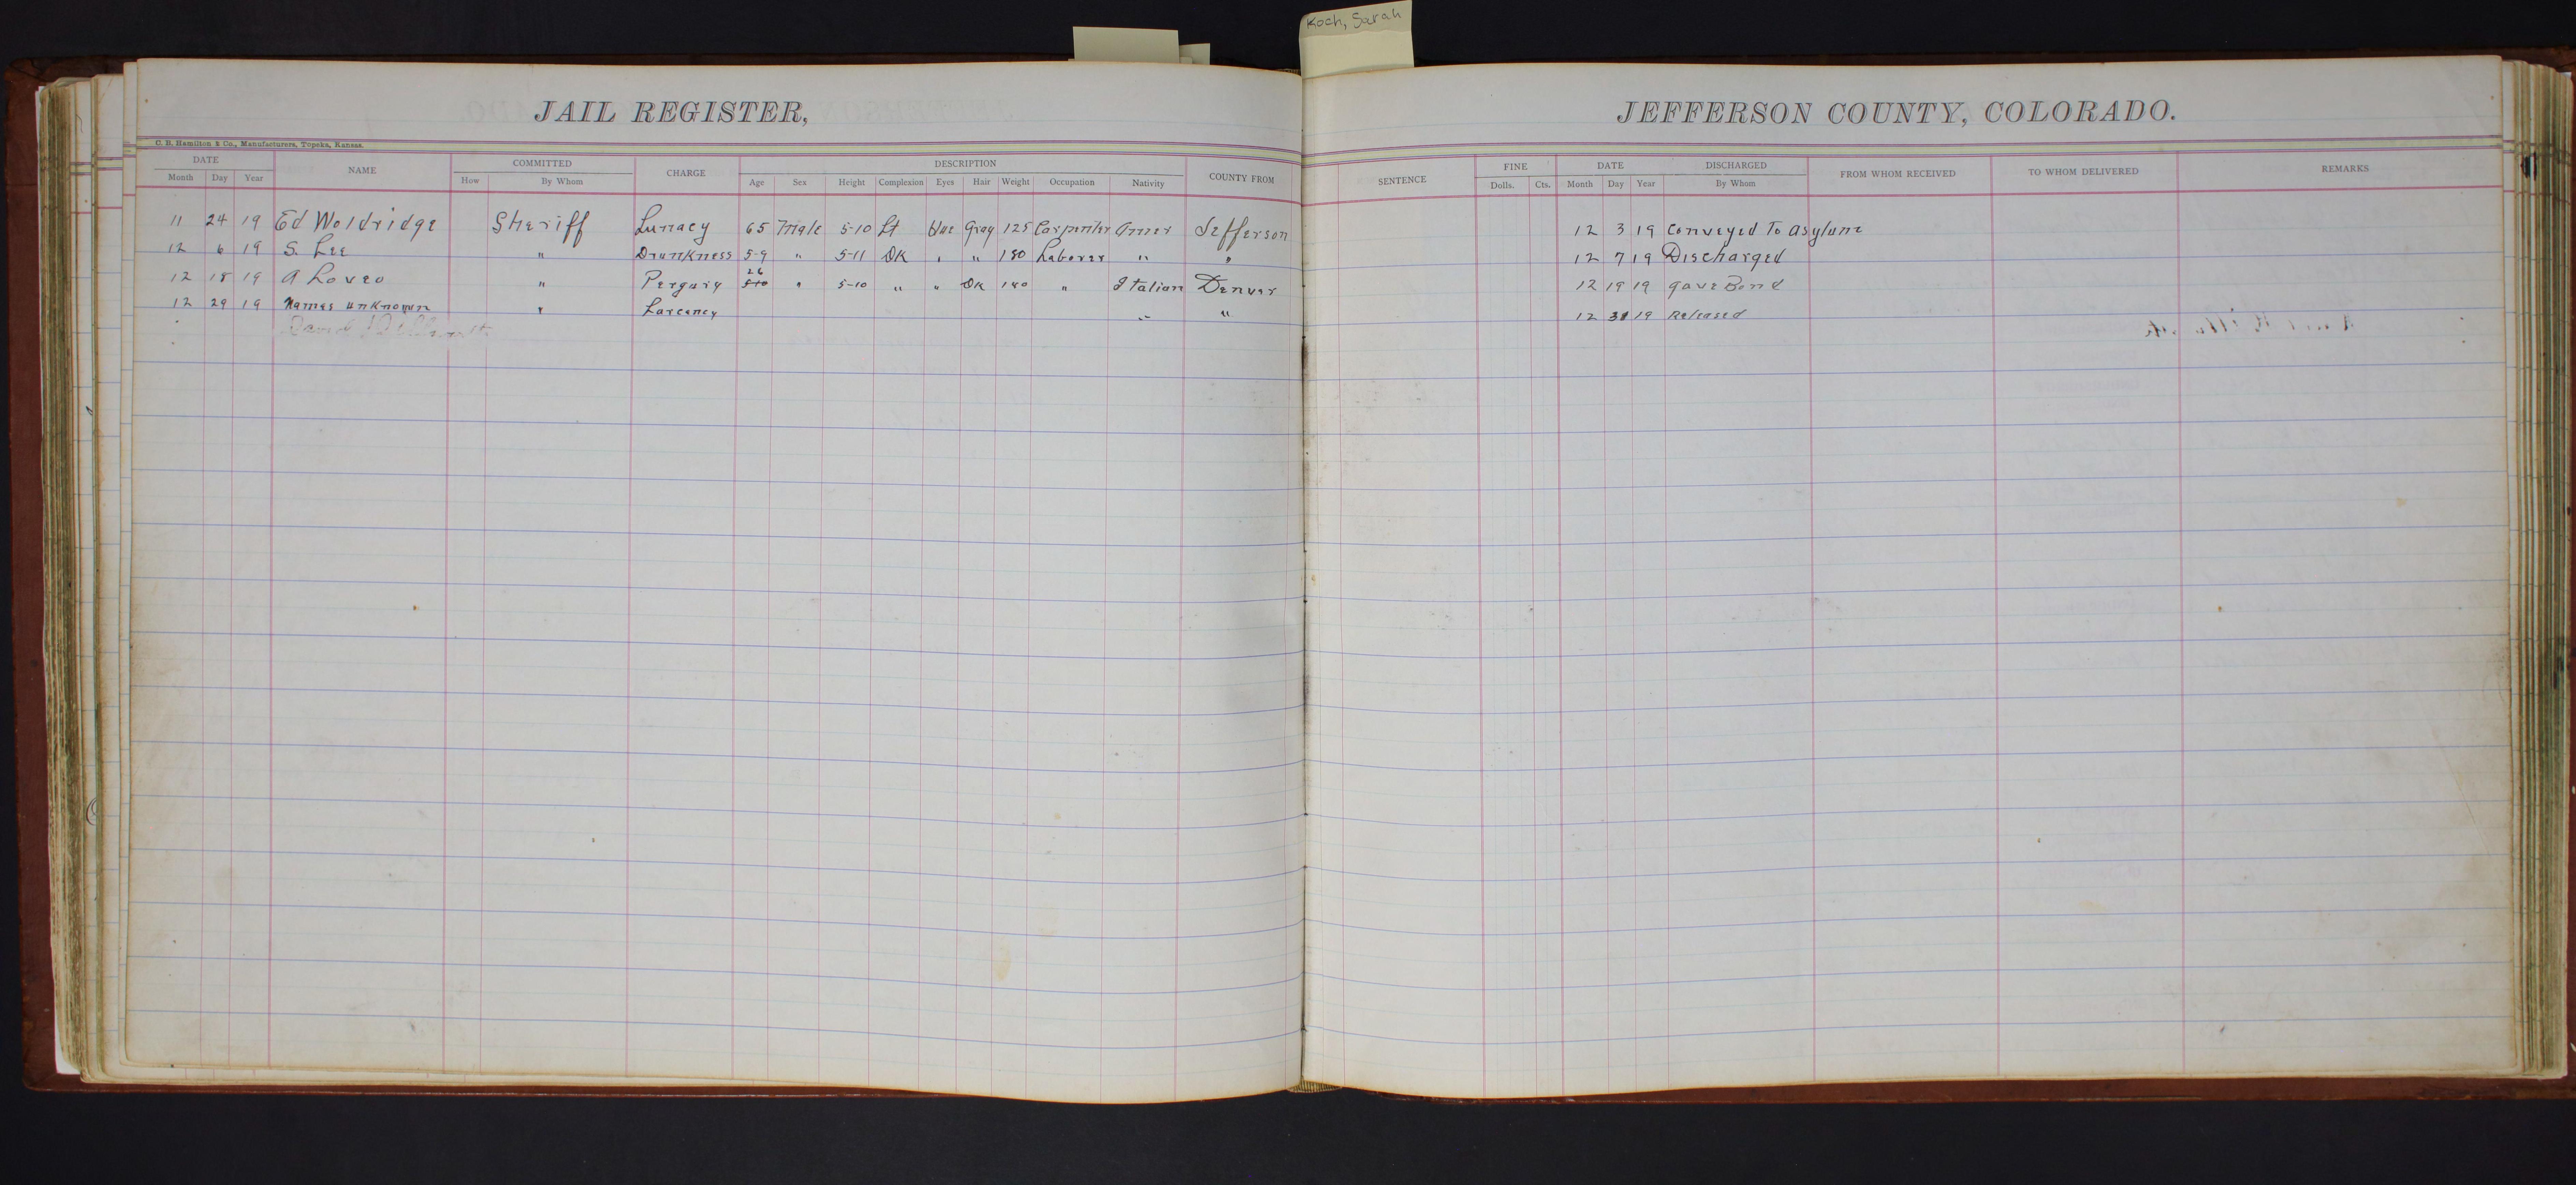 Koch, Sarah
JAIL REGISTER, JEFFERSON COUNTY, COLORADO.
C. B. Hamilton & Co., Manufacturers, Topeka, Kansas.
DATE NAME COMMITTED CHARGE DESCRIPTION COUNTY FROM SENTENCE FINE DATE DISCHARGED FROM WHOM RECEIVED TO WHOM DELIVERED REMARKS
Month Day Year How By Whom Age Sex Height Complexion Eyes Hair Weight Occupation Nativity Dolls. Cts. Month Day Year By Whom
11 24 19 Ed Woldridge Sheriff Lunacy 65 Male 5-10 Lt Gray 125 Carpenter Amer Jefferson 12 3 19 Conveyed To Asylum
12 6 19 S. Lee " Drunkness 5-9 " 5-11 DK " " 180 Laborer " " 12 7 19 Discharged
12 18 19 A Loveo " Pergury 26 " 5-10 " " DK 140 " Italian Denver 12 19 19 gave Bond
12 29 19 Names unknown " Larceny " " 12 31 19 Released